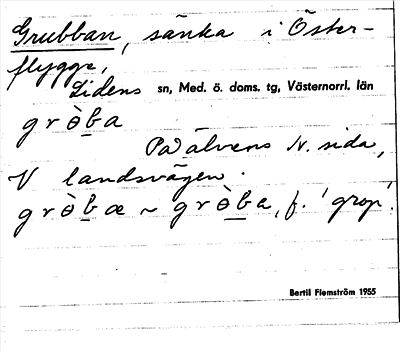 Grubban, sänka i Öster-
flygge,
Lidens sn, Med. ö. doms. tg, Västernorrl. län
grò̱ba
På älvens N. sida,
V landsvägen.
grɵ̀b̲æ ~ grɵ̀b̲a, f. 'grop'.
Bertil Flemström 1955